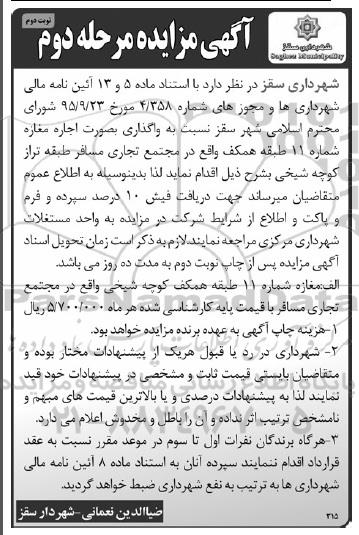 نوبت دوم
آگهی مزایده مرحله دوم
شهرداری سقز
Saghez Municipality
شهرداری سقز در نظر دارد با استناد ماده ۵ و ۱۳ آئین نامه مالی
شهرداری ها و مجوز های شماره ۴/۳۵۸ مورخ ۹۵/۹/۲۳ شورای
محترم اسلامی شهر سقز نسبت به واگذاری بصورت اجاره مغازه
شماره ۱۱ طبقه همکف واقع در مجتمع تجاری مسافر طبقه تراز
کوچه شیخی بشرح ذیل اقدام نماید لذا بدینوسیله به اطلاع عموم
متقاضیان میرساند جهت دریافت فیش ۱۰ درصد سپرده و فرم
و پاکت و اطلاع از شرایط شرکت در مزایده به واحد مستغلات
شهرداری مرکزی مراجعه نمایند.لازم به ذکر است زمان تحویل اسناد
آگهی مزایده پس از چاپ نوبت دوم به مدت ده روز می باشد.
الف:مغازه شماره ۱۱ طبقه همکف کوچه شیخی واقع در مجتمع
تجاری مسافر با قیمت پایه کارشناسی شده هر ماه ۵/۷۰۰/۰۰۰ ریال
۱-هزینه چاپ آگهی به عهده برنده مزایده خواهد بود.
۲- شهرداری در رد یا قبول هریک از پیشنهادات مختار بوده و
متقاضیان بایستی قیمت ثابت و مشخصی در پیشنهادات خود قید
نمایند لذا به پیشنهادات درصدی و یا بالاترین قیمت های مبهم و
نامشخص ترتیب اثر نداده و آن را باطل و مخدوش اعلام می دارد.
۳-هرگاه برندگان نفرات اول تا سوم در موعد مقرر نسبت به عقد
قرارداد اقدام ننمایند سپرده آنان به استناد ماده ۸ آئین نامه مالی
شهرداری ها به ترتیب به نفع شهرداری ضبط خواهد گردید.
ضیاالدین نعمانی-شهردار سقز
۳۱۵